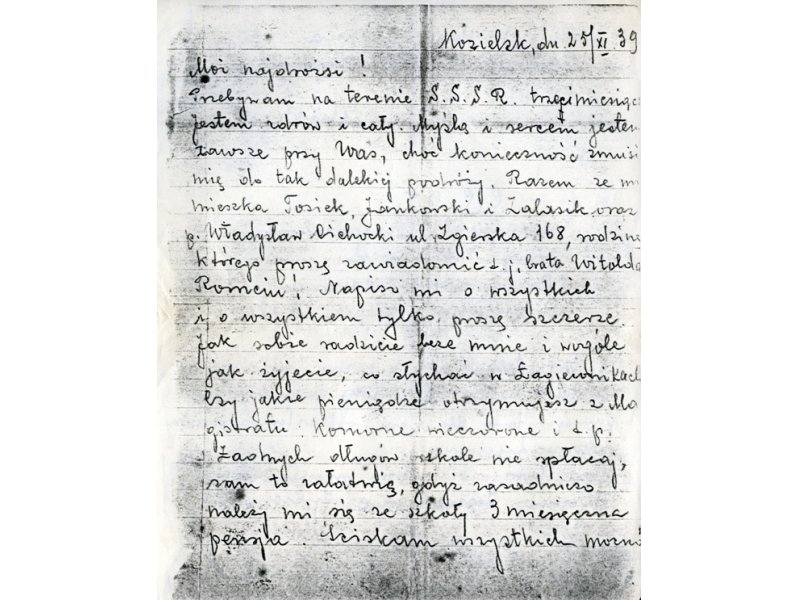 Kozielsk, dn 25/XI 39
Moi najdrożsi !
Przebywam na terenie S.S.S.R. trzeci miesiąc
jestem zdrów i cały. Myślą i sercem jestem
zawsze przy Was, choć konieczność zmusi
mię do tak dalekiej podróży. Razem ze m
mieszka Tosiek, Jankowski i Zalasik oraz
p. Władysław Cichocki ul. Zgierska 168, rodzinę
którego proszę zawiadomić t.j. brata Witolda
Romciu! Napisz mi o wszystkich
i o wszystkiem tylko proszę szczerze.
Jak sobie radzicie beze mnie i wogóle
jak żyjecie, co słychać w Łagiewnikach
Czy jakie pieniądze otrzymujesz z Ma
gistratu. Komorne wieczorowe i t.p.
Żadnych długów szkole nie spłacaj,
sam to załatwię, gdyż zasadniczo
należy mi się ze szkoły 3 miesięczna
pensja. Ściskam wszystkich mocno